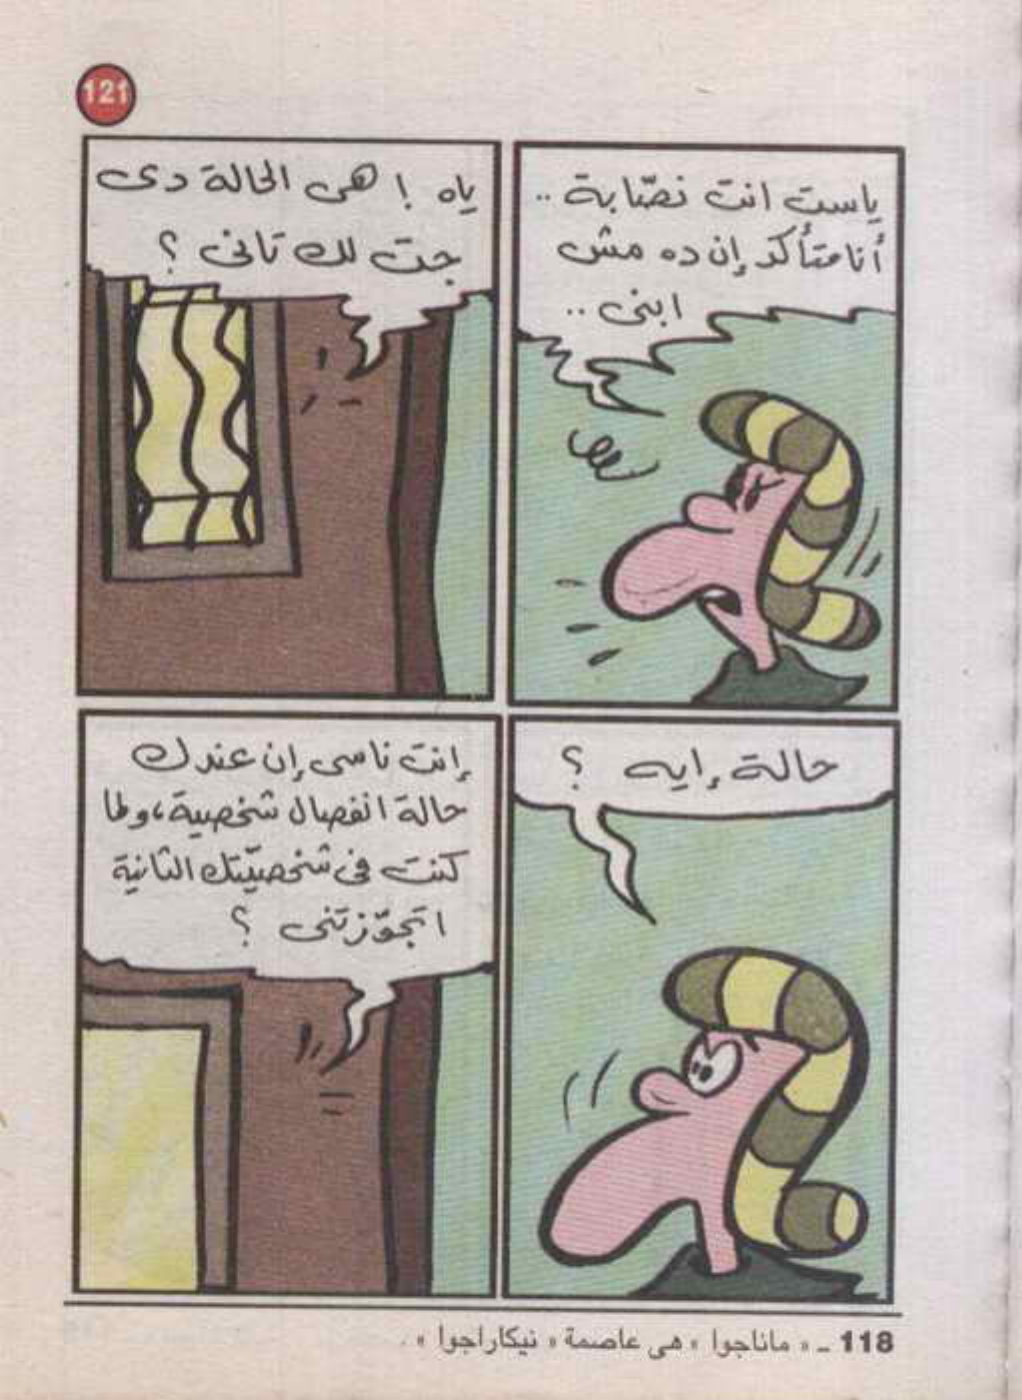 121
ياست انت نصّابة ..
أنا متأكد إن ده مش
ابنى ..
ياه ! هى الحالة دى
جت لك تانى ؟
حالة إيه ؟
إنت ناسى إن عندك
حالة انفصال شخصية، ولما
كنت فى شخصيّتك الثانية
اتجوّزتنى ؟
118 ـ « ماناجوا » هى عاصمة « نيكاراجوا » .